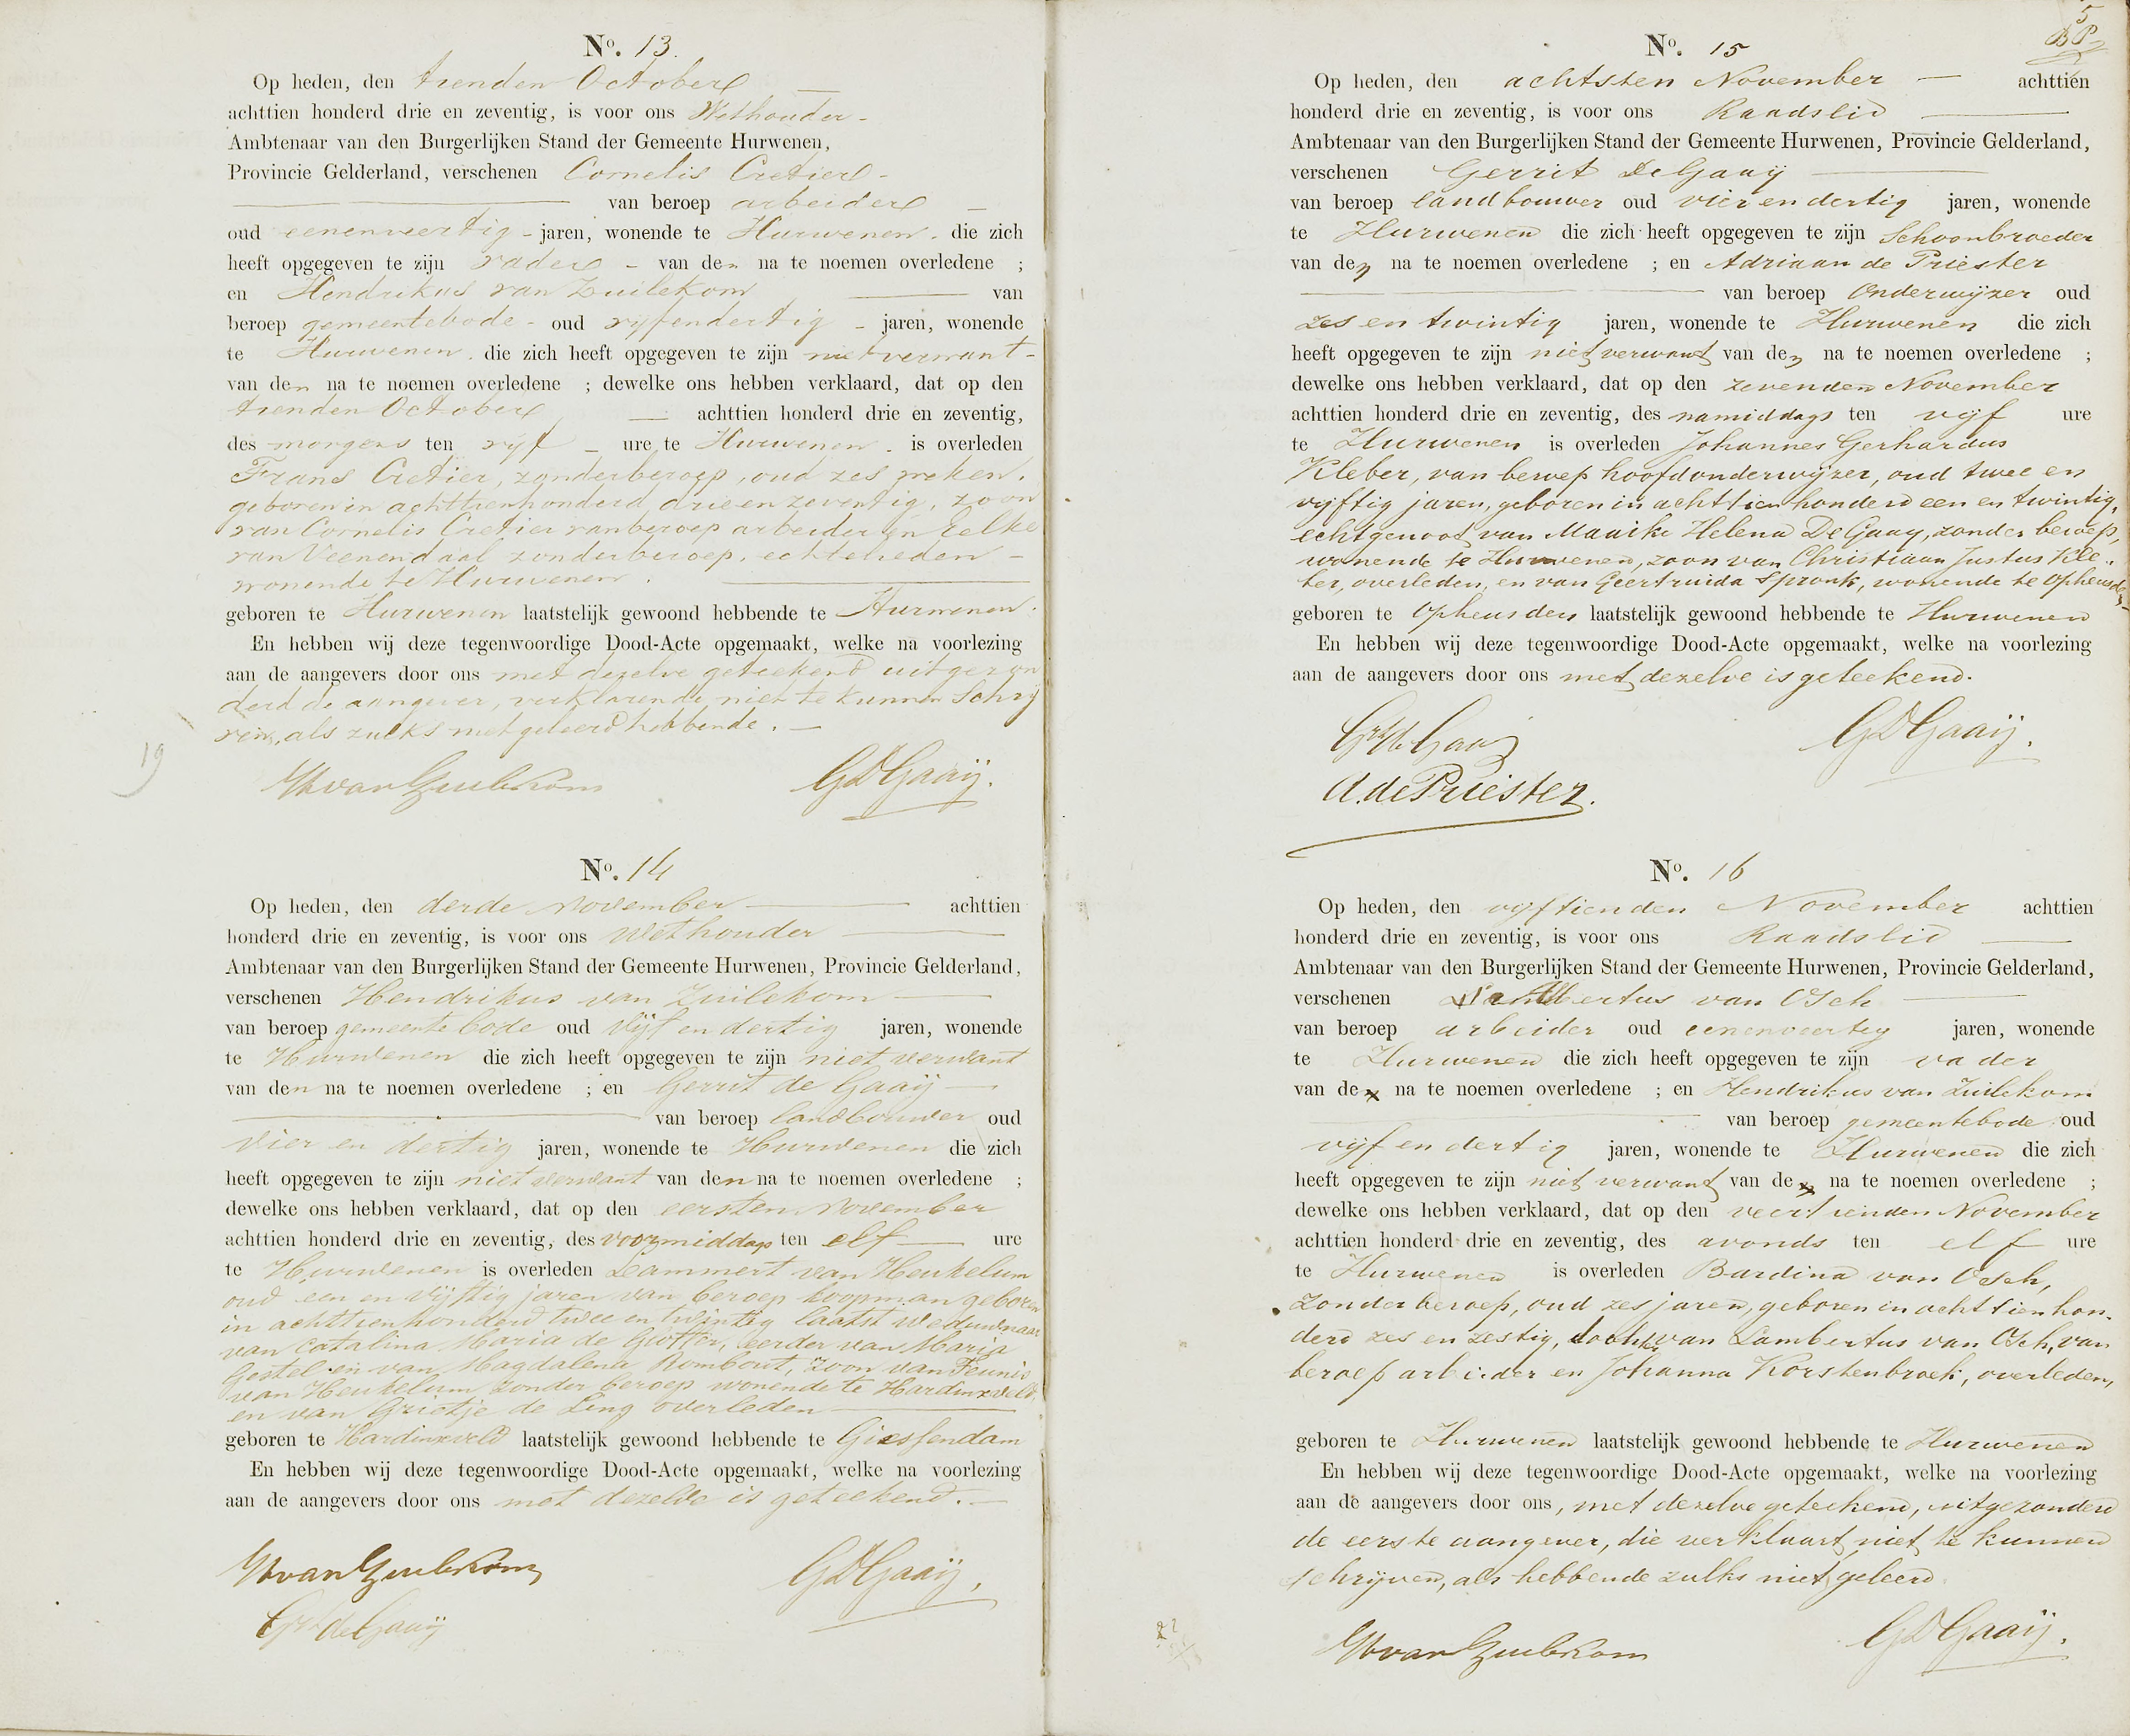 No. 13.
Op heden, den tienden October
achttien honderd drie en zeventig, is voor ons Wethouder
Ambtenaar van den Burgerlijken Stand der Gemeente Hurwenen,
Provincie Gelderland, verschenen Cornelis Cretier
van beroep arbeider
oud eenenveertig jaren, wonende te Hurwenen die zich
heeft opgegeven te zijn vader van den na te noemen overledene ;
en Hendrikus van Zuilekom van
beroep gemeentebode oud vijfendertig jaren, wonende
te Hurwenen die zich heeft opgegeven te zijn niet verwant
van den na te noemen overledene ; dewelke ons hebben verklaard, dat op den
tienden October achttien honderd drie en zeventig,
des morgens ten vijf ure te Hurwenen is overleden
Frans Cretier, zonder beroep, oud zes weken,
geboren in achttienhonderd drie en zeventig, zoon
van Cornelis Cretier van beroep arbeider en Eelke
van Veenendaal zonder beroep, echtelieden
wonende te Hurwenen.
geboren te Hurwenen laatstelijk gewoond hebbende te Hurwenen.
En hebben wij deze tegenwoordige Dood-Acte opgemaakt, welke na voorlezing
aan de aangevers door ons met dezelve geteekend uitgezon
derd de aangever, verklarende niet te kunnen schrij
ven, als zulks niet geleerd hebbende.
19
HvanZuilekom GDGaaij.
No. 14
Op heden, den derde November achttien
honderd drie en zeventig, is voor ons Wethouder
Ambtenaar van den Burgerlijken Stand der Gemeente Hurwenen, Provincie Gelderland,
verschenen Hendrikus van Zuilekom
van beroep gemeente bode oud Vijf en dertig jaren, wonende
te Hurwenen die zich heeft opgegeven te zijn niet verwant
van den na te noemen overledene ; en Gerrit de Gaaij
van beroep landbouwer oud
Vier en dertig jaren, wonende te Hurwenen die zich
heeft opgegeven te zijn niet verwant van den na te noemen overledene ;
dewelke ons hebben verklaard, dat op den eersten November
achttien honderd drie en zeventig, des voormiddags ten elf ure
te Hurwenen is overleden Lammert van Heukelum
oud een en vijftig jaren van beroep koopman geboren
in achttienhonderd twee en twintig laatst Weduwnaar
van Catalina Maria de Grotter, eerder van Maria
Gestel en van Magdalena Rombout, zoon van Teunis
van Heukelum zonder beroep wonende te Hardinxveld
en van Grietje de Leng overleden
geboren te Hardinxveld laatstelijk gewoond hebbende te Giessendam
En hebben wij deze tegenwoordige Dood-Acte opgemaakt, welke na voorlezing
aan de aangevers door ons met dezelve is geteekend.
HvanZuilekom GDGaaij.
Gt deGaaij
5
No. 15
Op heden, den achtsten November achttien
honderd drie en zeventig, is voor ons Raadslid
Ambtenaar van den Burgerlijken Stand der Gemeente Hurwenen, Provincie Gelderland,
verschenen Gerrit De Gaaij
van beroep landbouwer oud vier en dertig jaren, wonende
te Hurwenen die zich heeft opgegeven te zijn Schoonbroeder
van den na te noemen overledene ; en Adriaan de Priester
van beroep Onderwijzer oud
zes en twintig jaren, wonende te Hurwenen die zich
heeft opgegeven te zijn niet verwant van den na te noemen overledene ;
dewelke ons hebben verklaard, dat op den zevenden November
achttien honderd drie en zeventig, des namiddags ten vijf ure
te Hurwenen is overleden Johannes Gerhardus
Kleber, van beroep hoofdonderwijzer, oud twee en
vijftig jaren, geboren in achttien honderd een en twintig,
echtgenoot van Maaike Helena De Gaay, zonder beroep,
wonende te Hurwenen, zoon van Christiaan Justus Kle-
ber, overleden, en van Geertruida Spronk, wonende te Opheusden,
geboren te Opheusden laatstelijk gewoond hebbende te Hurwenen
En hebben wij deze tegenwoordige Dood-Acte opgemaakt, welke na voorlezing
aan de aangevers door ons met dezelve is geteekend.
Gt de Gaaij GDGaaij.
A. de Priester.
No. 16
Op heden, den vijftienden November achttien
honderd drie en zeventig, is voor ons Raadslid
Ambtenaar van den Burgerlijken Stand der Gemeente Hurwenen, Provincie Gelderland,
verschenen Lambertus van Osch
van beroep arbeider oud eenenveertig jaren, wonende
te Hurwenen die zich heeft opgegeven te zijn vader
van de na te noemen overledene ; en Hendrikus van Zuilekom
van beroep gemeentebode oud
vijf en dertig jaren, wonende te Hurwenen die zich
heeft opgegeven te zijn niet verwant van de na te noemen overledene ;
dewelke ons hebben verklaard, dat op den veertienden November
achttien honderd drie en zeventig, des avonds ten elf ure
te Hurwenen is overleden Bardina van Osch,
zonder beroep, oud zes jaren, geboren in achttien hon-
derd zes en zestig, dochter van Lambertus van Osch, van
beroep arbeider en Johanna Korstenbroek, overleden,
geboren te Hurwenen laatstelijk gewoond hebbende te Hurwenen
En hebben wij deze tegenwoordige Dood-Acte opgemaakt, welke na voorlezing
aan de aangevers door ons, met dezelve geteekend, uitgezonderd
de eerste aangever, die verklaart niet te kunnen
schrijven, als hebbende zulks niet geleerd
HvanZuilekom GDGaaij.